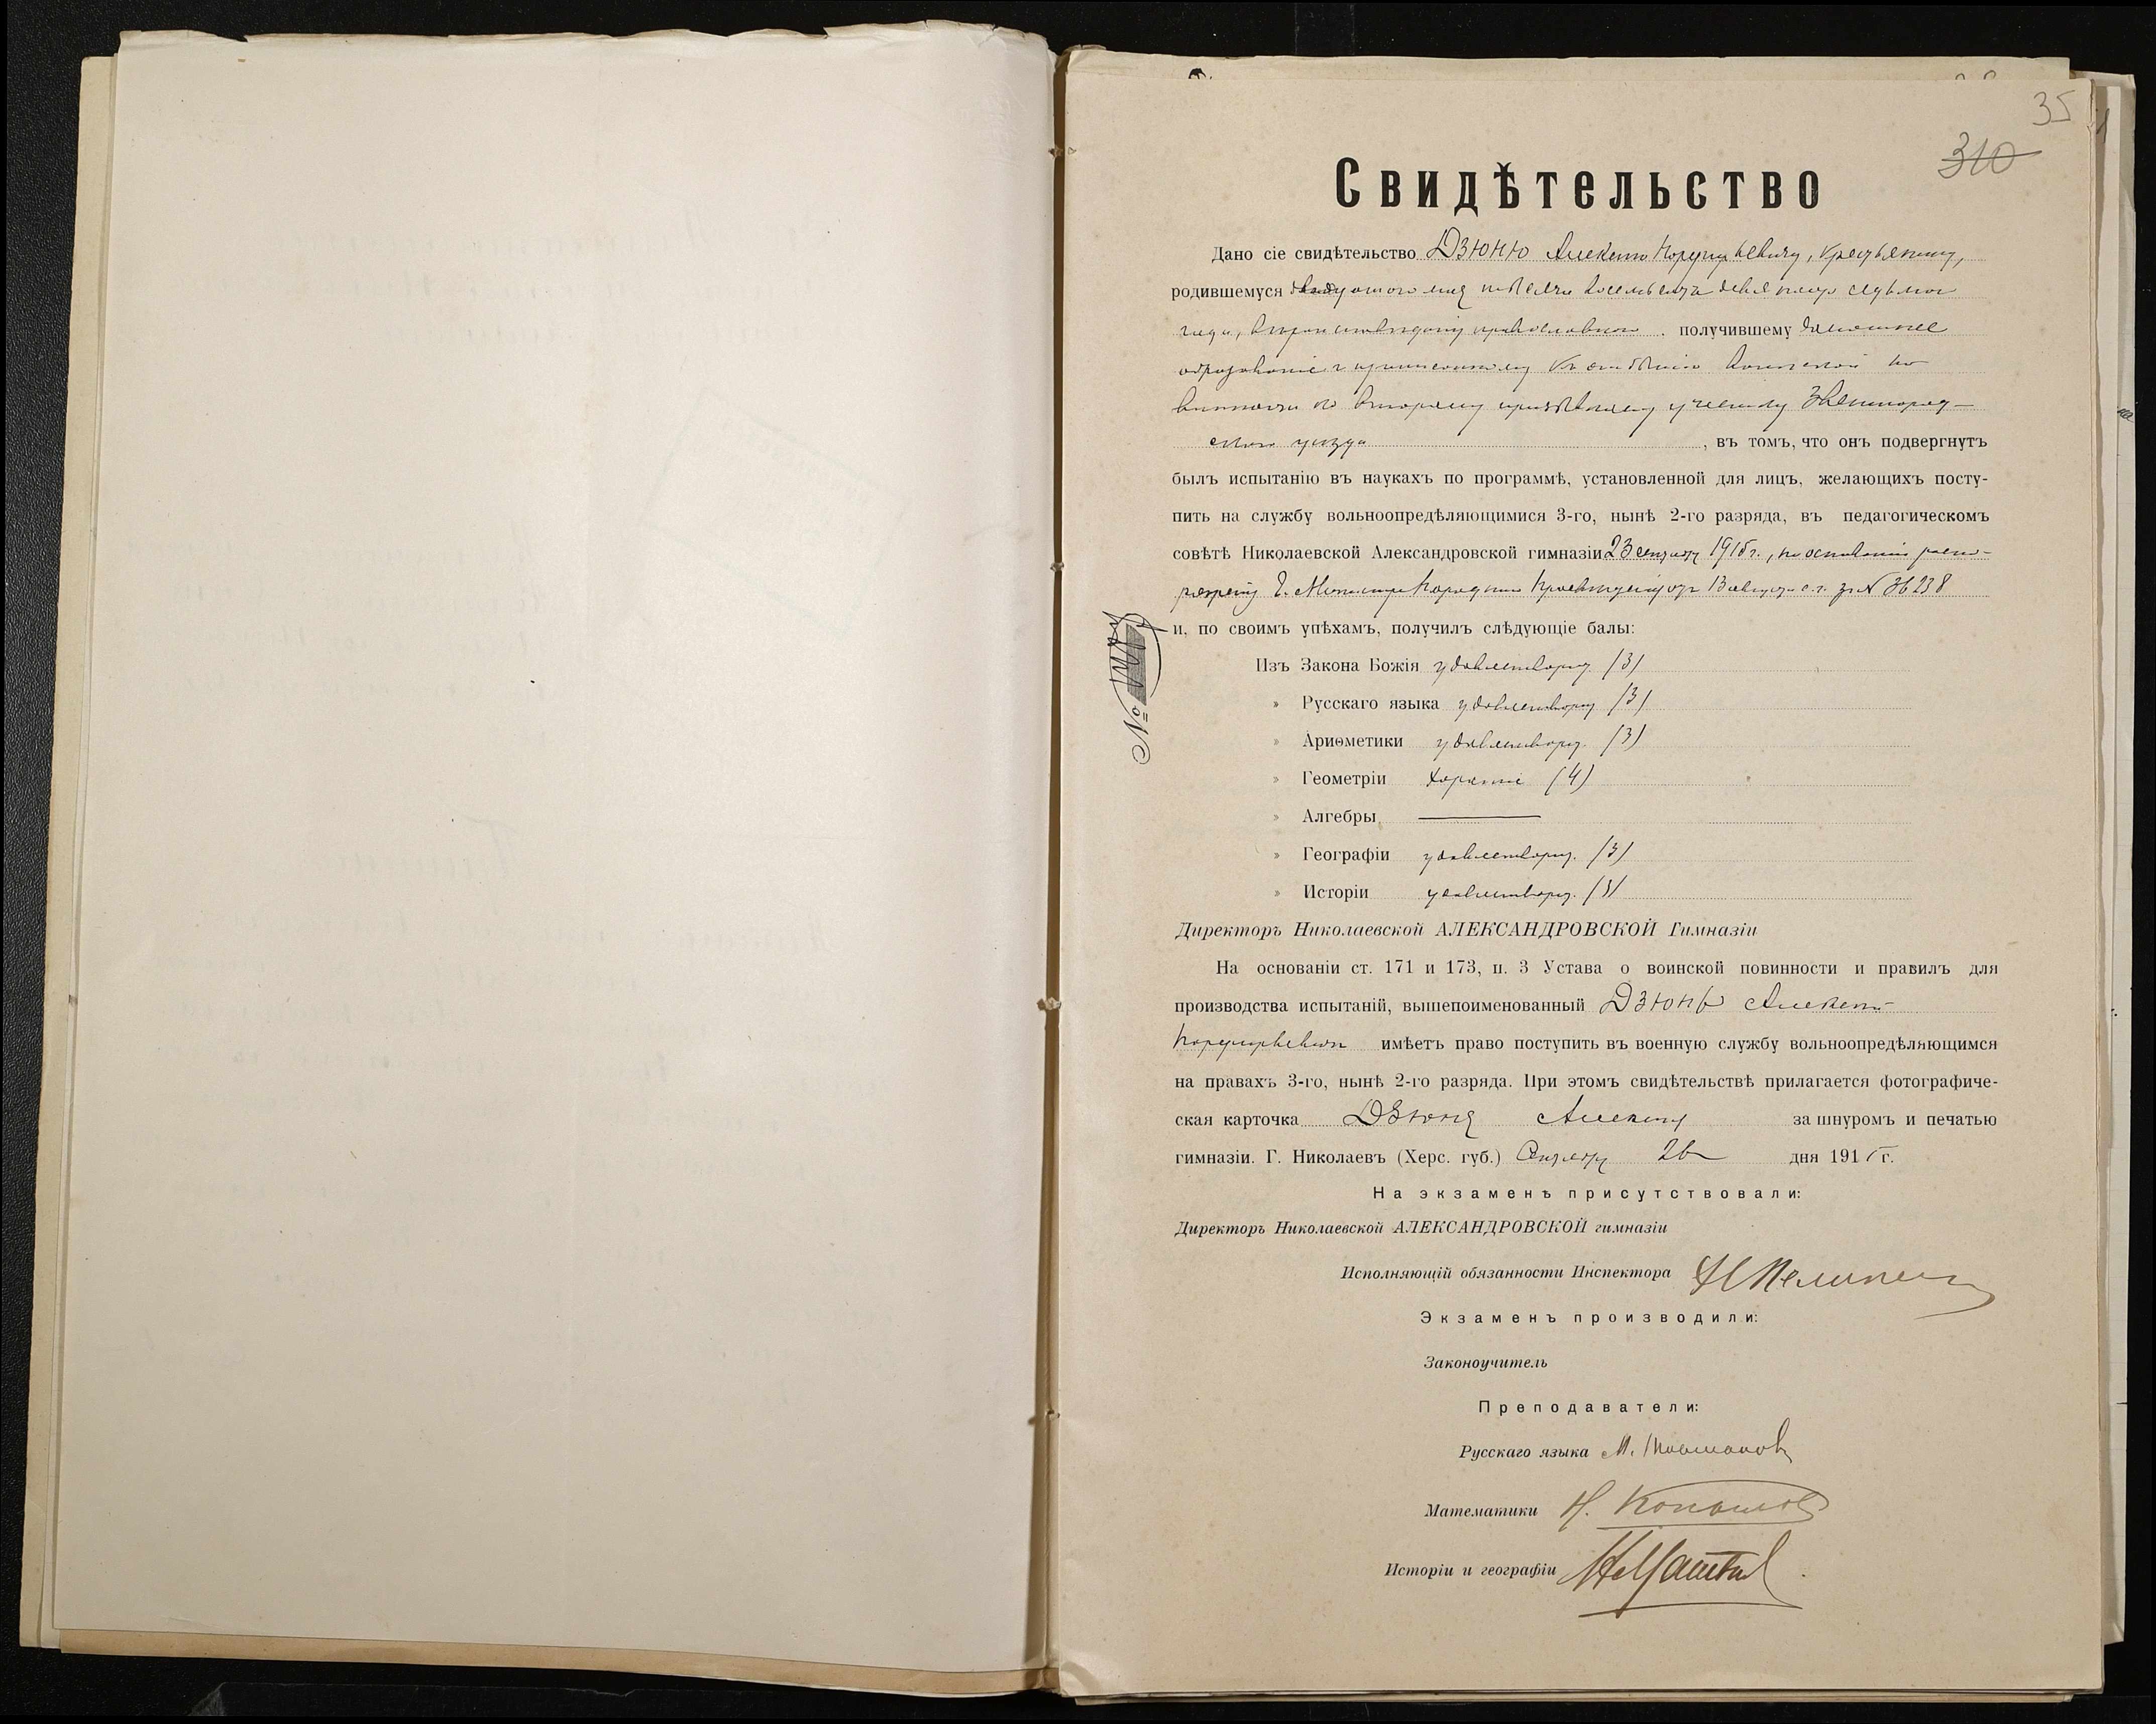 35
310
Свидѣтельство
Дано сіе свидѣтельство Дзюню Алексѣю крестьянину,
родившемуся марта восемьсотъ девяносто седьмого
года, вѣроисповѣданія православнаго, получившему домашнее
образованіе и приписанному къ отбыванію воинской по-
винности по второму призывному участку Звенигород-
скаго уѣзда, въ томъ, что онъ подвергнутъ
былъ испытанію въ наукахъ по программѣ, установленной для лицъ, желающихъ посту-
пить на службу вольноопредѣляющимися 3-го, нынѣ 2-го разряда, въ педагогическомъ
совѣтѣ Николаевской Александровской гимназіи 23 1915 г., на основаніи распо-
ряженія Г. Министра Народнаго Просвѣщенія отъ 13 августа с. г. за № 36238
и, по своимъ успѣхамъ, получилъ слѣдующіе балы:
№
Изъ Закона Божія удовлетворит. (3)
» Русскаго языка удовлетворит. (3)
» Ариѳметики удовлетворит. (3)
» Геометріи хорошіе (4)
» Алгебры —
» Географіи удовлетворит. (3)
» Исторіи удовлетворит. (3)
Директоръ Николаевской АЛЕКСАНДРОВСКОЙ Гимназіи
На основаніи ст. 171 и 173, п. 3 Устава о воинской повинности и правилъ для
производства испытаній, вышепоименованный Дзюнь Алексѣй
имѣетъ право поступить въ военную службу вольноопредѣляющимся
на правахъ 3-го, нынѣ 2-го разряда. При этомъ свидѣтельствѣ прилагается фотографиче-
ская карточка Дзюня Алексѣя за шнуромъ и печатью
гимназіи. Г. Николаевъ (Херс. губ.) дня 1915 г.
На экзаменѣ присутствовали:
Директоръ Николаевской АЛЕКСАНДРОВСКОЙ гимназіи
Исполняющій обязанности Инспектора
Экзаменъ производили:
Законоучитель
Преподаватели:
Русскаго языка М.
Математики Н.
Исторіи и географіи